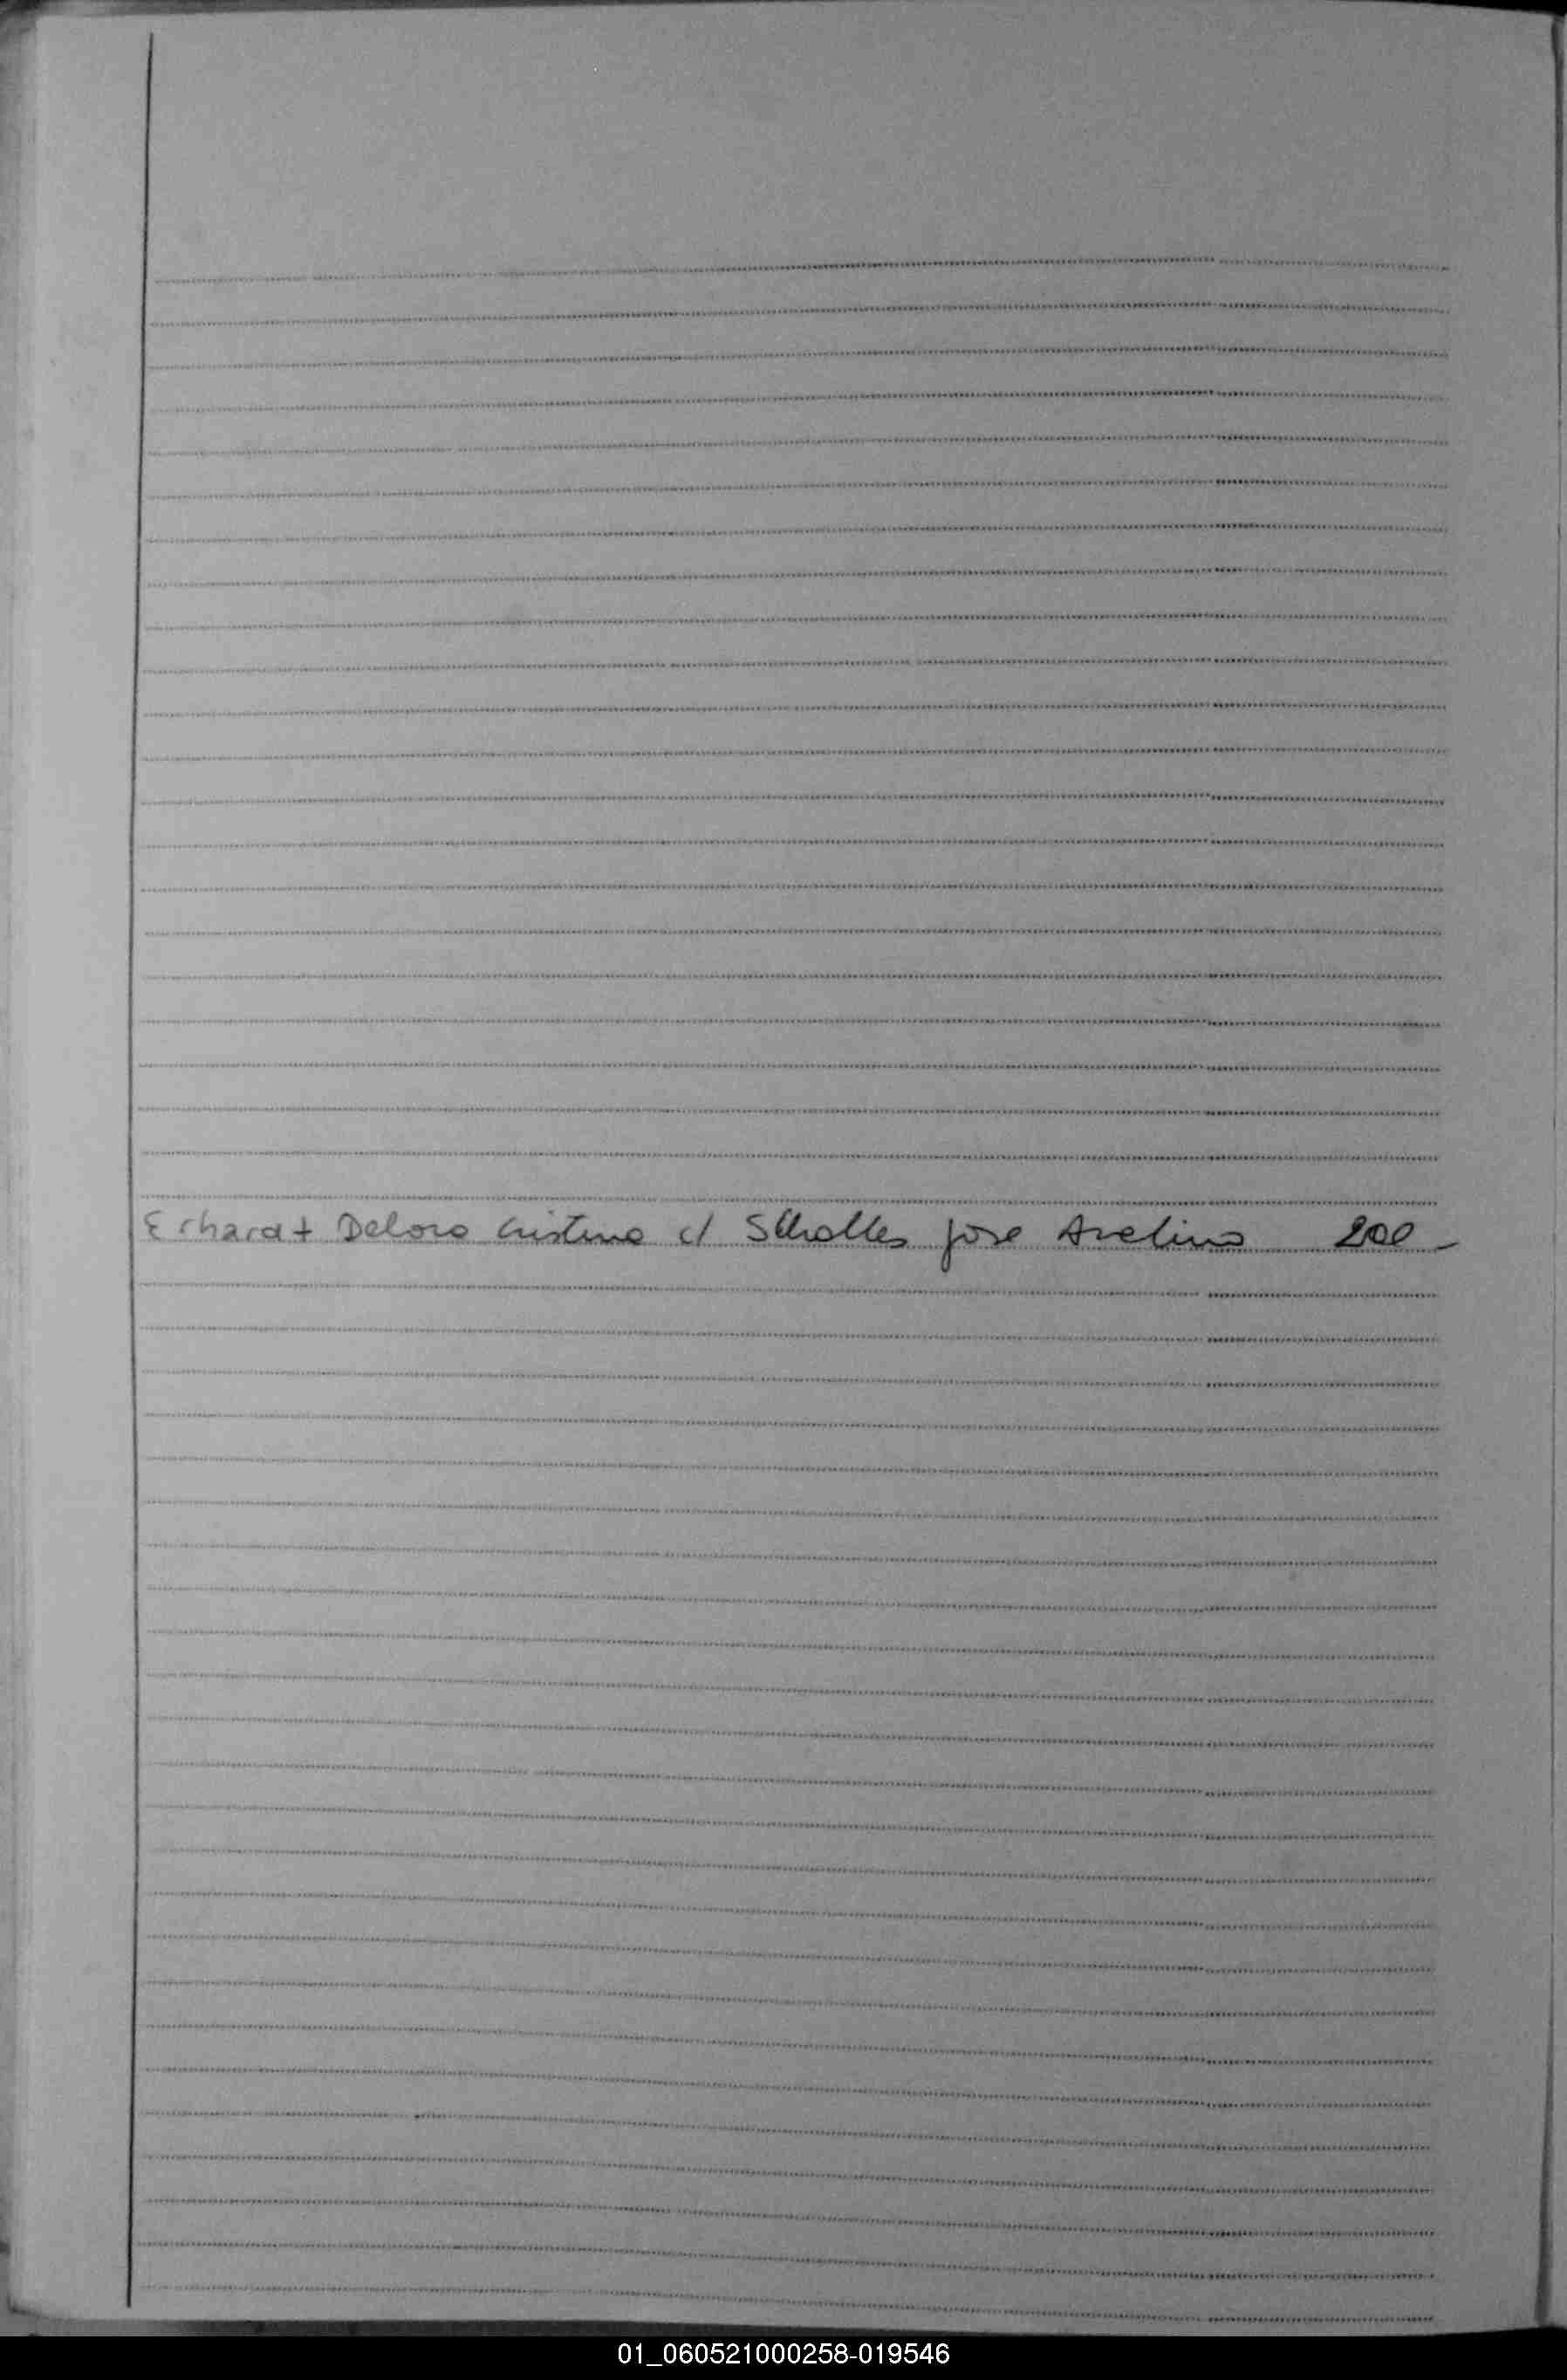 Erhardt Deloro Cristina c/ Scholles Jose Avelino 200-
01_060521000258-019546